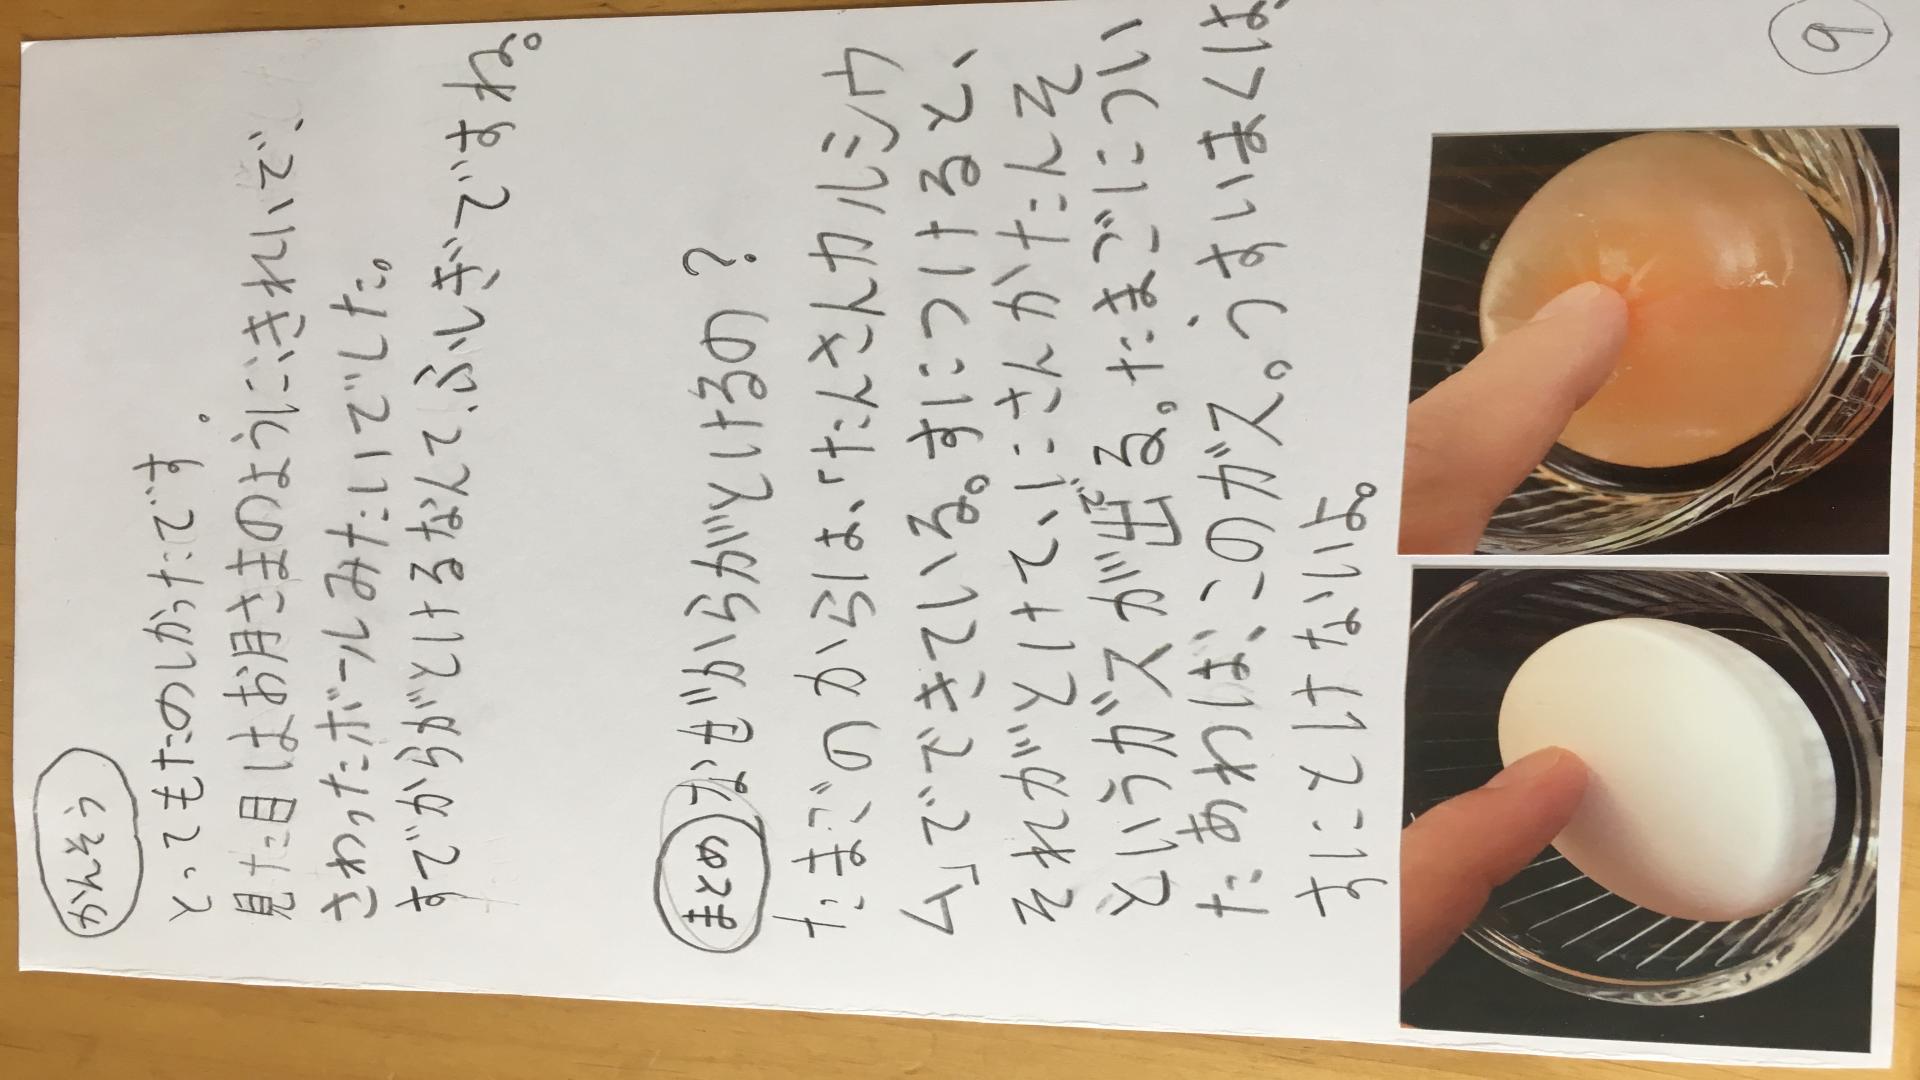 かんそう
とってもたのしかったです。
見た目はお月さまのように、きれいで、
さわったボールみたいでした。
すでからがとけるなんて、ふしぎですね。
まとめ なぜからがとけるの？
たまごのからは、「たんさんカルシウ
ム」でできている。すにつけると、
それがとけて、にさんかたんそ
というガスが出る。たまごについ
で
たあわは、このガス。うすいまくは、
すにとけないよ。
9